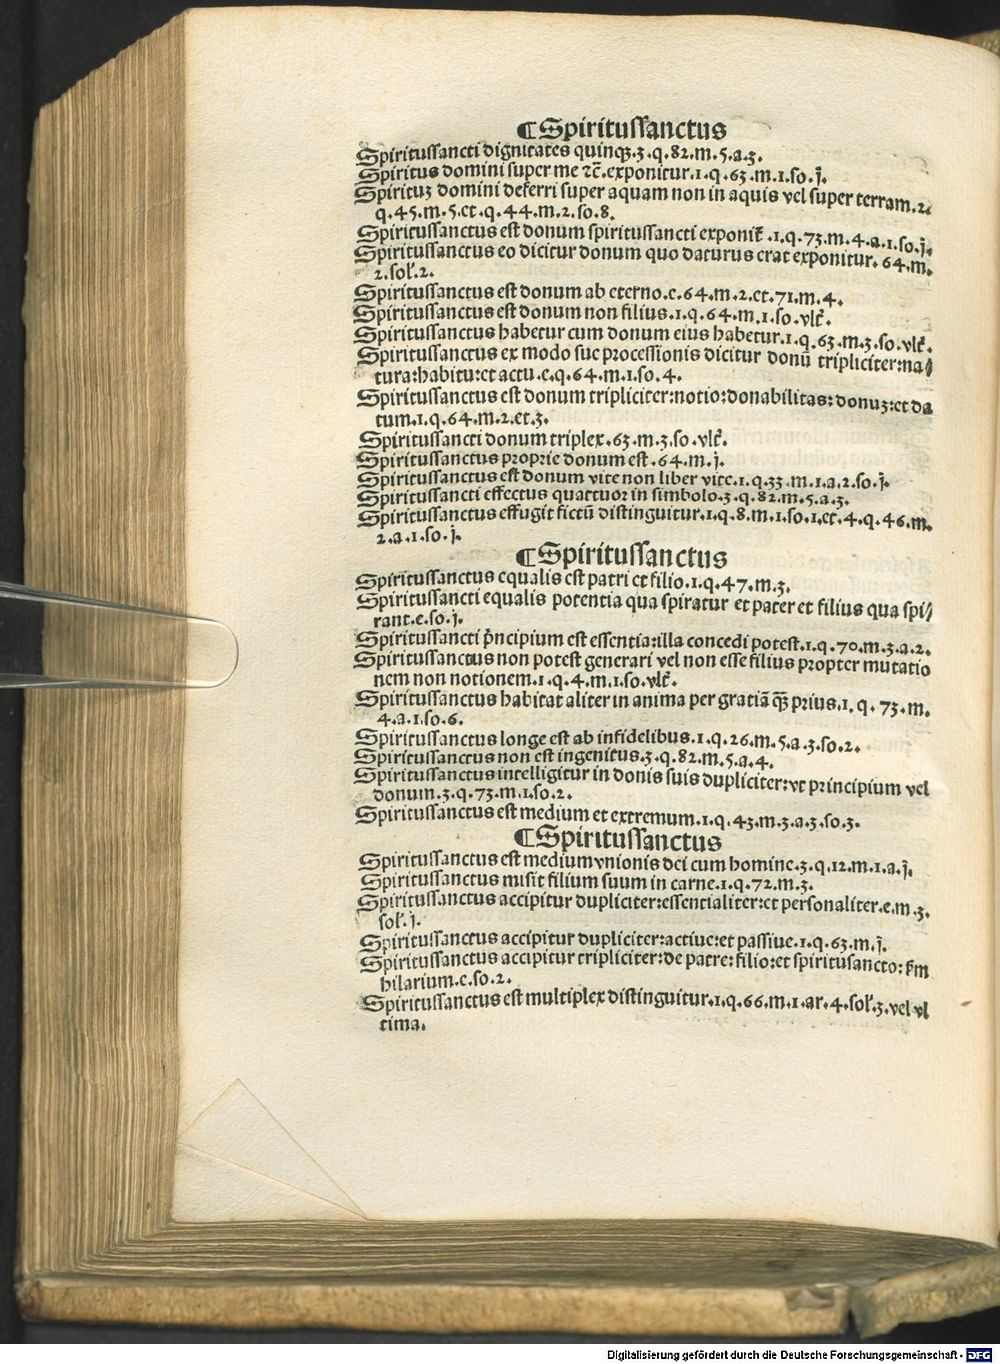 ¶Spiritussanctus
Spiritussancti dignitates quinqꝫ.3.q.82.m.5.a.3.
Spiritus domini super me ⁊c̄.exponitur.1.q.63.m.1.so.j.
Spirituꝫ domini deferri super aquam non in aquis vel super terram.2.
q.45.m.5.et.q.44.m.2.so.8.
Spiritussanctus est donum spiritussancti exponit᷑.1.q.73.m.4.a.1.so.j.
Spiritussanctus eo dicitur donum quo daturus erat exponitur.64.m.
2.sol᷑.2.
Spiritussanctus est donum ab eterno.e.64.m.2.et.71.m.4.
Spiritussanctus est donum non filius.1.q.64.m.1.so.vlt᷑.
Spiritussanctus habetur cum donum eius habetur.1.q.63.m.3.so.vlt᷑.
Spiritussanctus ex modo sue processionis dicitur donū tripliciter:na⸗
tura:habitu:et actu.e.q.64.m.1.so.4.
Spiritussanctus est donum tripliciter:notio:donabilitas:donuꝫ:et da
tum.1.q.64.m.2.et.3.
Spiritussancti donum triplex.63.m.3.so.vlt᷑.
Spiritussanctus proprie donum est.64.m.j.
Spiritussanctus est donum vite non liber vite.1.q.33.m.1.a.2.so.j.
Spiritussancti effectus quattuor in simbolo.3.q.82.m.5.a.3.
Spiritussanctus effugit fictū distinguitur.1.q.8.m.1.so.1.et.4.q.46.m.
2.a.1.so.j.
¶Spiritussanctus
Spiritussanctus equalis est patri et filio.1.q.47.m.3.
Spiritussancti equalis potentia qua spiratur et pater et filius qua spi⸗
rant.e.so.j.
Spiritussancti p̄ncipium est essentia:illa concedi potest.1.q.70.m.3.a.2.
Spiritussanctus non potest generari vel non esse filius propter mutatio
nem non notionem.1.q.4.m.1.so.vlt᷑.
Spiritussanctus habitat aliter in anima per gratiā qꝫ̄ prius.1.q.73.m.
4.a.1.so.6.
Spiritussanctus longe est ab infidelibus.1.q.26.m.5.a.3.so.2.
Spiritussanctus non est ingenitus.3.q.82.m.5.a.4.
Spiritussanctus intelligitur in donis suis dupliciter:vt principium vel
donum.3.q.73.m.1.so.2.
Spiritussanctus est medium et extremum.1.q.43.m.3.a.3.so.3.
¶Spiritussanctus
Spiritussanctus est medium vnionis dei cum homine.3.q.12.m.1.a.j.
Spiritussanctus misit filium suum in carne.1.q.72.m.3.
Spiritussanctus accipitur dupliciter:essentialiter:et personaliter.e.m.3.
sol᷑.j.
Spiritussanctus accipitur dupliciter:actiue:et passiue.1.q.63.m.j.
Spiritussanctus accipitur tripliciter:de patre:filio:et spiritusancto:s᷑m
hilarium.e.so.2.
Spiritussanctus est multiplex distinguitur.1.q.66.m.1.ar.4.sol᷑.3.vel vl
tima.
Digitalisierung gefördert durch die Deutsche Forschungsgemeinschaft - DFG